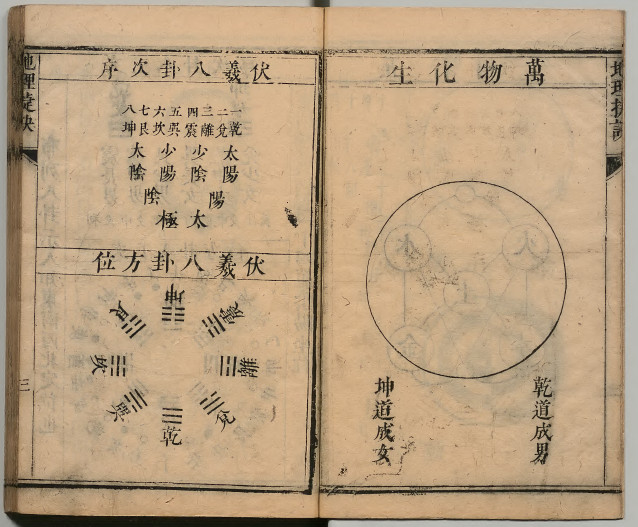 萬物化生
乾道成男
坤道成女
伏羲八卦次序
一乾
二兌
三離
四震
五巽
六坎
七艮
八坤
太陽
少陰
少陽
太陰
陽
陰
太極
伏羲八卦方位
坤
震
離
兌
乾
巽
坎
艮
三